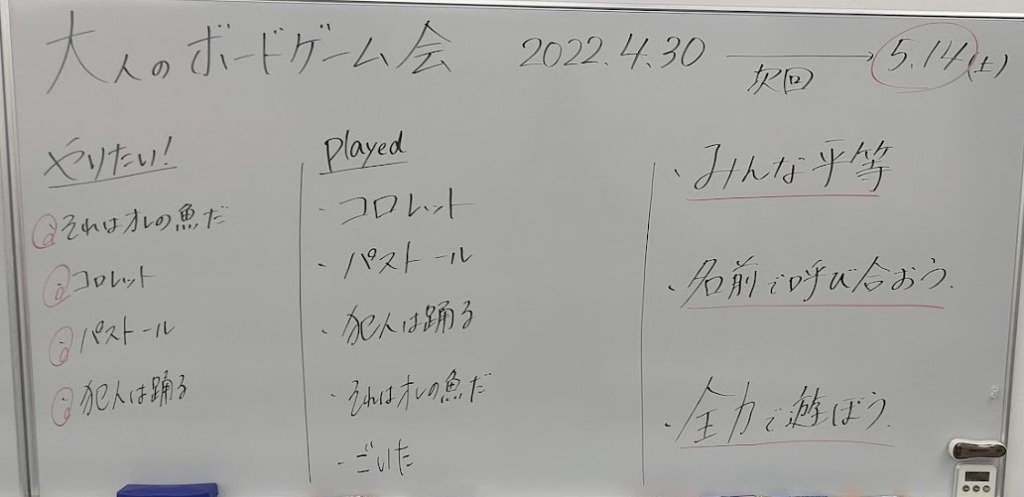 大人のボードゲーム会 2022.4.30 → 5.14(土)
次回
やりたい!
・それはオレの魚だ
・コロレット
・パストール
・犯人は踊る
played
・コロレット
・パストール
・犯人は踊る
・それはオレの魚だ
・ごいた
・みんな平等
・名前で呼び合おう.
・全力で遊ぼう.